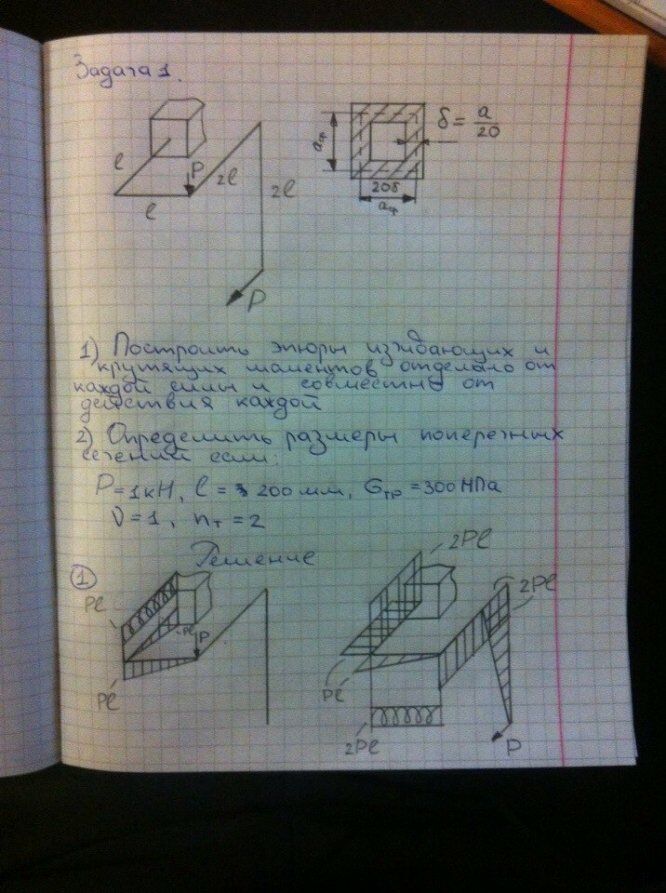 Задача 1.
l
P
2l
l
2l
P
aср
20δ
aср
δ = a/20
1) Построить эпюры изгибающих и
крутящих моментов отдельно от
каждой силы и совместно от
действия каждой
2) Определить размеры поперечных
сечений если:
P = 1кН, l = 200 мм, Gтр = 300 МПа
ν = 1, nт = 2
Решение
1
Pl
Pl
P
Pl
2Pl
2Pl
Pl
2Pl
P